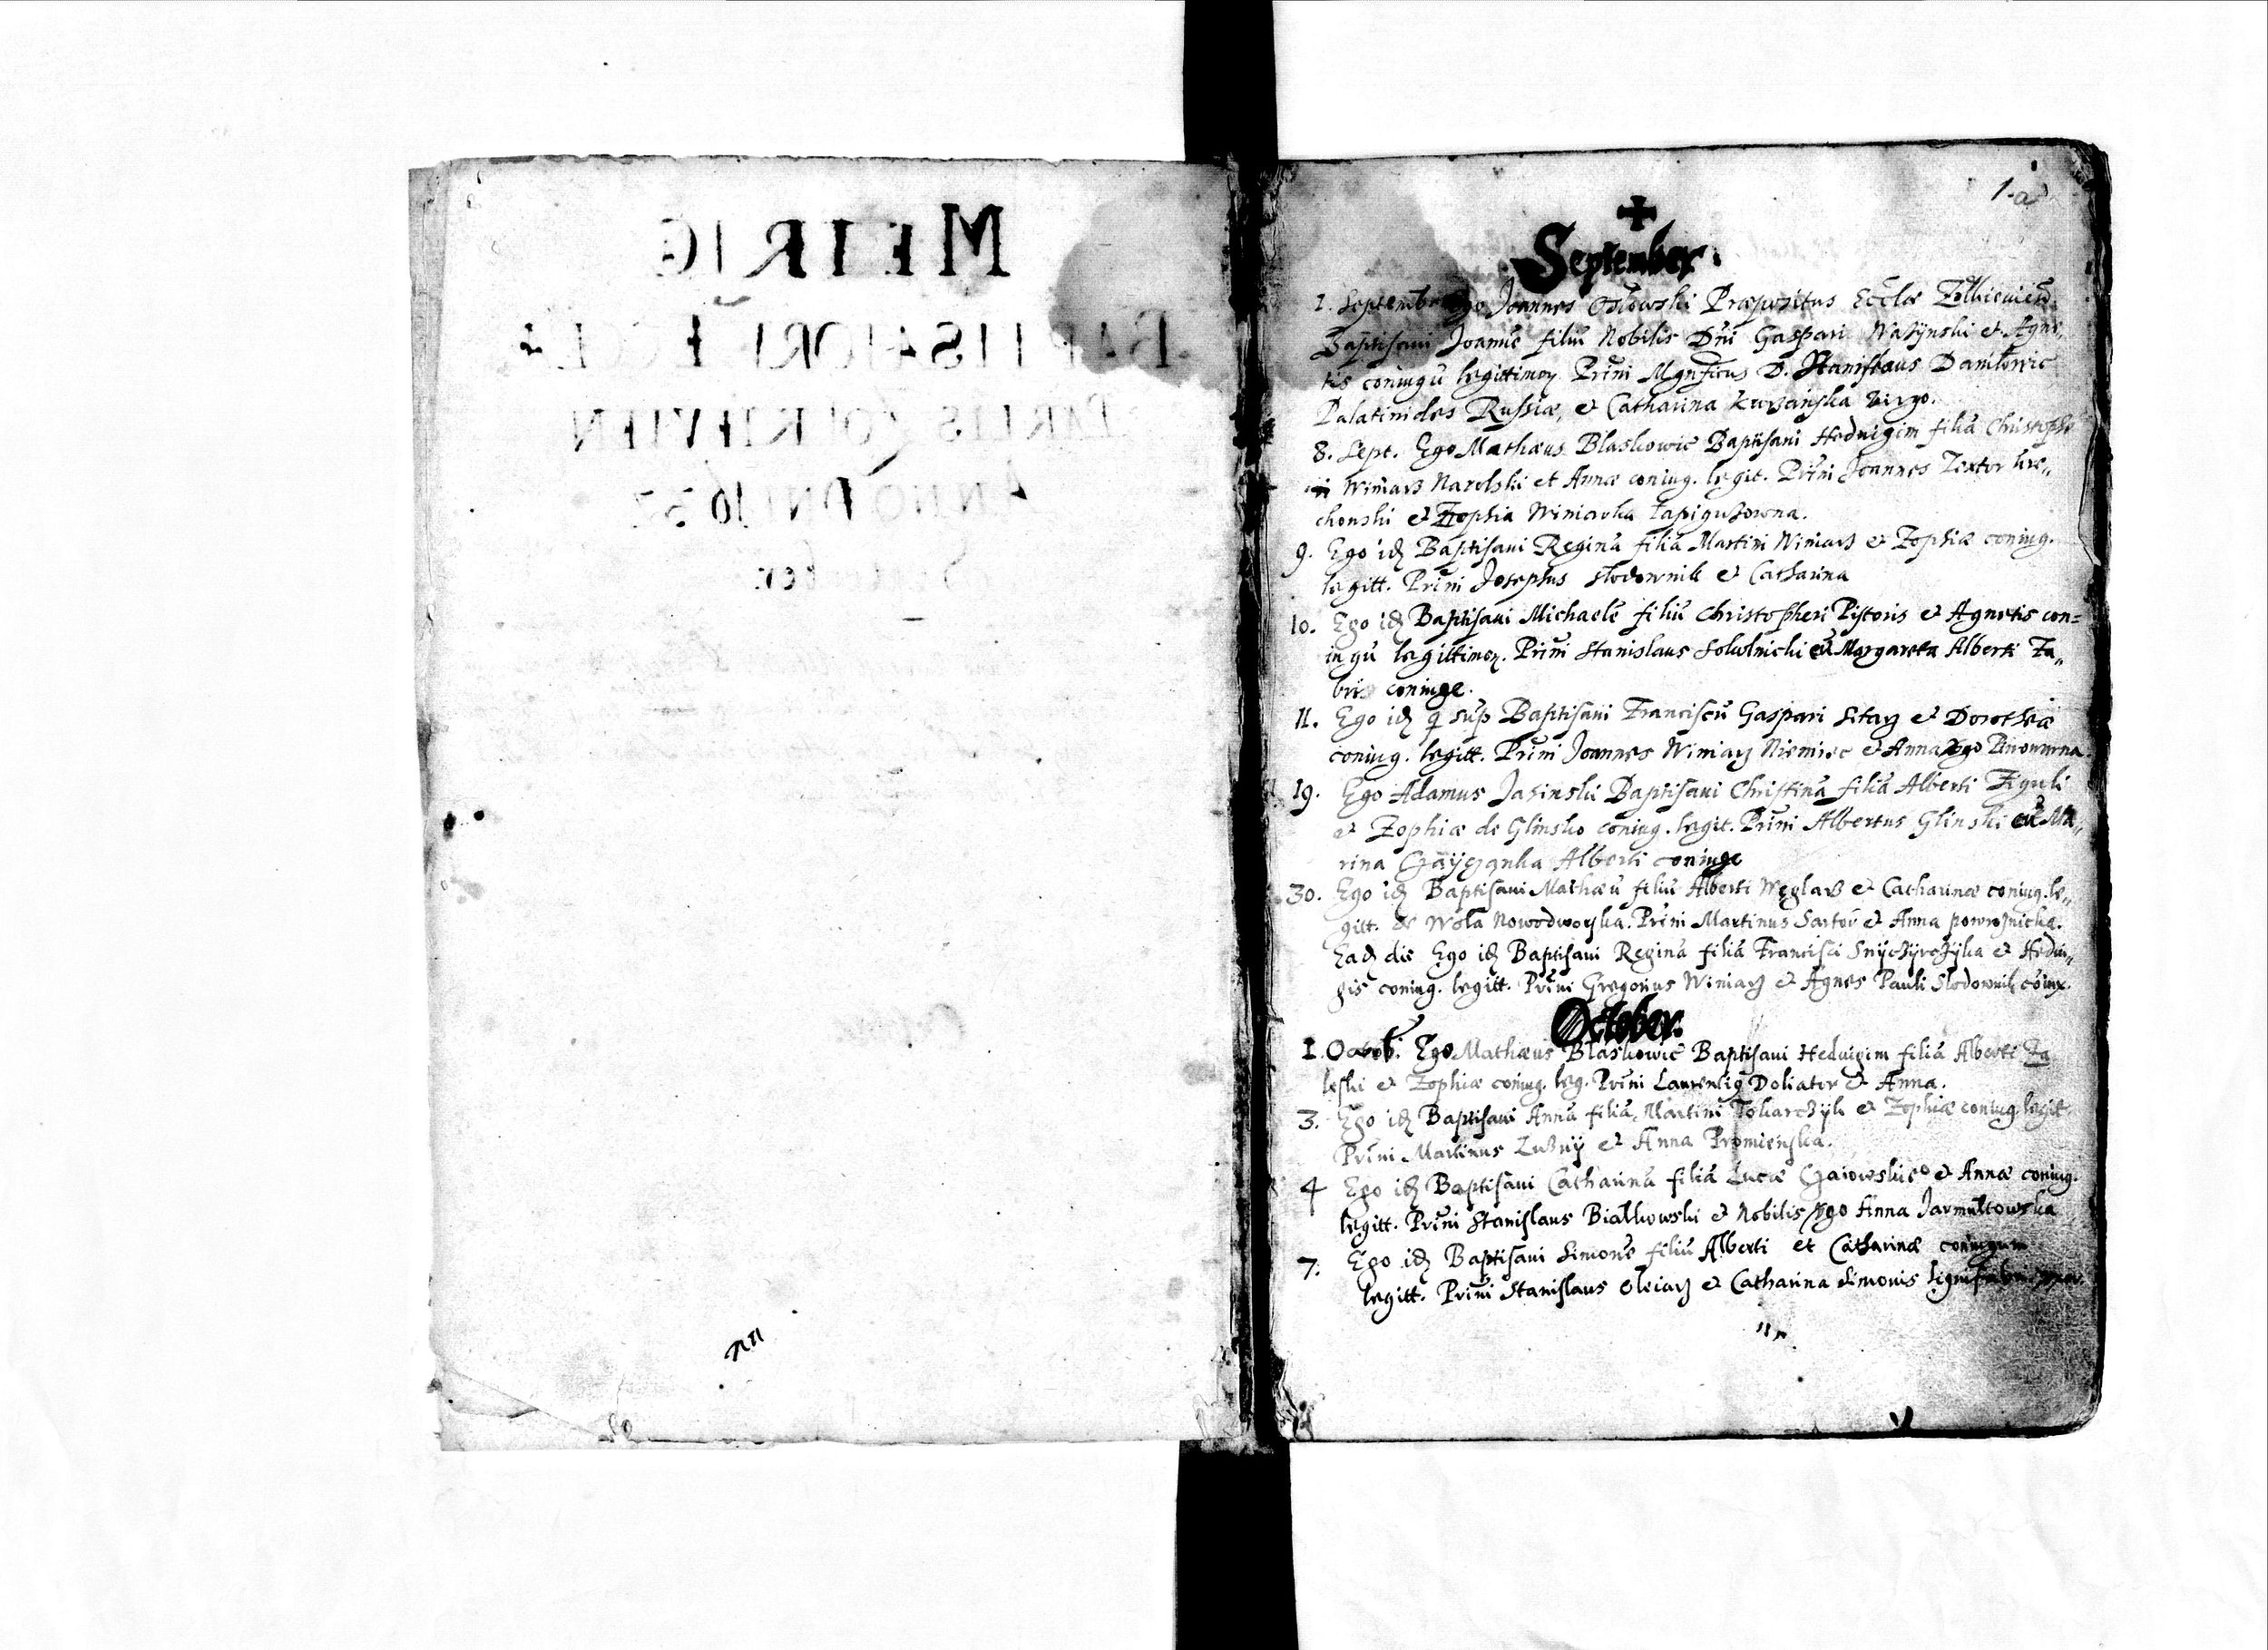 1. a
September.
1. Septembr Ego Joannes Osłowski Præpositus Eccłæ
Baptisaui Joannē filiū Nobilis Dn̄i Gaspari Wasÿnski et Agne„
tis coniugū legittimoꝝ. Prīni Mgnficus D. Stanislaus Daniłowic
Palatinides Russiæ, et Catharina virgo.
8. Sept. Ego Mathæus Blaskowic Baptisaui Heduigim filiā Christophe
Winiarz Narolski et Annæ coniug. legit. Prīni Joannes Textor
chonski et Zophia Winiarka
9. Ego idē Baptisaui Reginā filiā Martini Winiarz et Zophiæ coniug.
legitt. Prīni Josephus słodownik et Catharina
10. Ego idē Baptisaui Michaelē filiū Christopheri Pistoris et Agnetis con=
iugū legittimoꝝ. Prīni Stanislaus Sokolnicki cū Margareta Alberti Fa„
bris coniuge.
11. Ego idē q̄ sup Baptisaui Franciscū Gaspari Sitarz et Dorotheæ
coniug. legitt. Prīni Joannes Winiarz Niemiec et Anna
19. Ego Adamus Jasinski Baptisaui Christinā filiā Alberti Figuli
et Zophiæ de Glinsko coniug. legit. Prīni Albertus Glinski cū Ma„
rina Alberti coniuge
30. Ego idē Baptisaui Mathæū filiū Alberti Węglarz et Catharinæ coniug. le„
gitt. de Wola Nowodworska. Prīni Martinus Sartor et Anna powroznicka.
Eadē die Ego idē Baptisaui Reginā filiā Francisci et Hedui„
gis coniug. legitt. Prīni Gregorius Winiarz et Agnes Pauli Słodownik cōiux.
October.
1. Octob. Ego Mathæus Blaskowic Baptisaui Heduigim filiā Alberti Za
leski et Zophiæ coniug. leg. Prīni Laurentiꝰ Doliator et Anna.
3. Ego idē Baptisaui Annā filiā Martini Tokarczÿk et Zophiæ coniug. legit.
Prīni Martinus Luznÿ et Anna Promienska.
4 Ego idē Baptisaui Catharinā filiā Lucæ et Annæ coniug.
legitt. Prīni Stanislaus Białkowski et Nobilis Anna Jarmułtowska
7. Ego idē Baptisaui Simonē filiū Alberti et Catharinæ coniugum
legitt. Prīni Stanislaus Oleiarz et Catharina Simonis